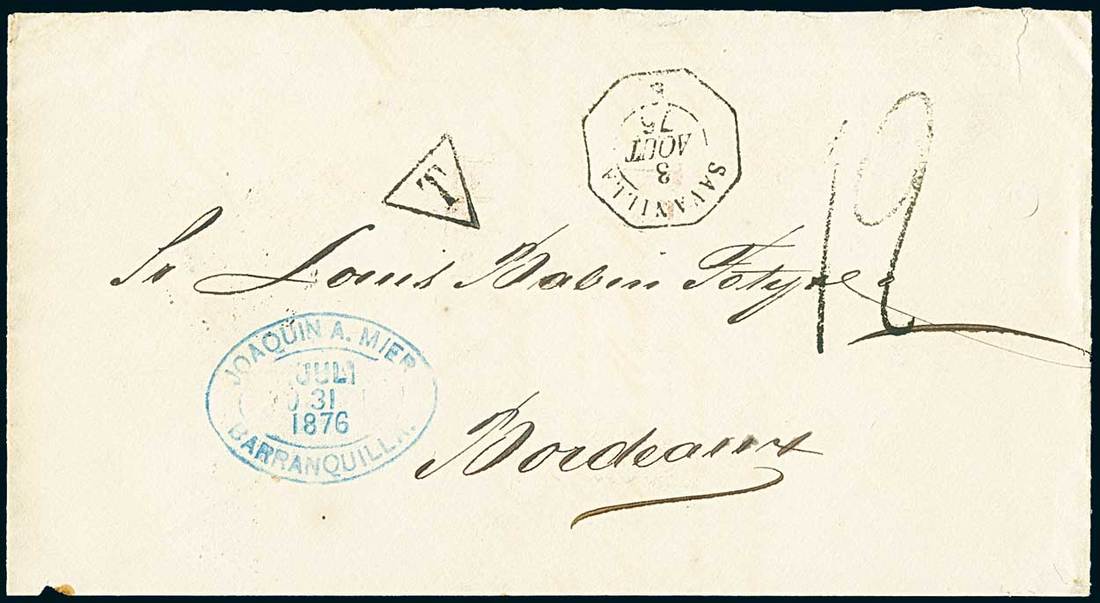 T
SAVANILLA
3
AOUT
12
Sr Louis Babin
JOAQUIN A. MIER
JULI
O 31
1876
BARRANQUILLA.
Bordeaux